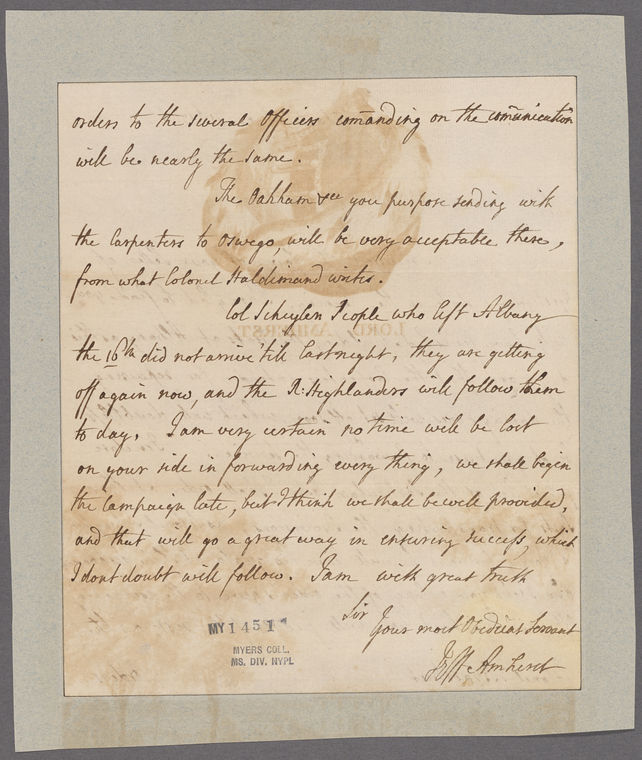 orders to the several Officers com̄anding on the com̄unication
will be nearly the same.
The Oakham &ca you purpose sending with
the Carpenters to Oswego, will be very acceptable there,
from what Colonel Haldimand writes.
Col Schuylers People who left Albany
LORD AMHERST
the 16th did not arrive 'till last night, they are getting
off again now, and the R: Highlanders will follow them
to day. I am very certain no time will be lost
on your side in forwarding every thing, we shall begin
the Campaign late, but I think we shall be well provided,
and that will go a great way in ensuring success, which
I dont doubt will follow. I am with great truth
Sir
Your most Obedient Servant
Jeff Amherst
MY 1451
MYERS COLL.
MS. DIV. NYPL